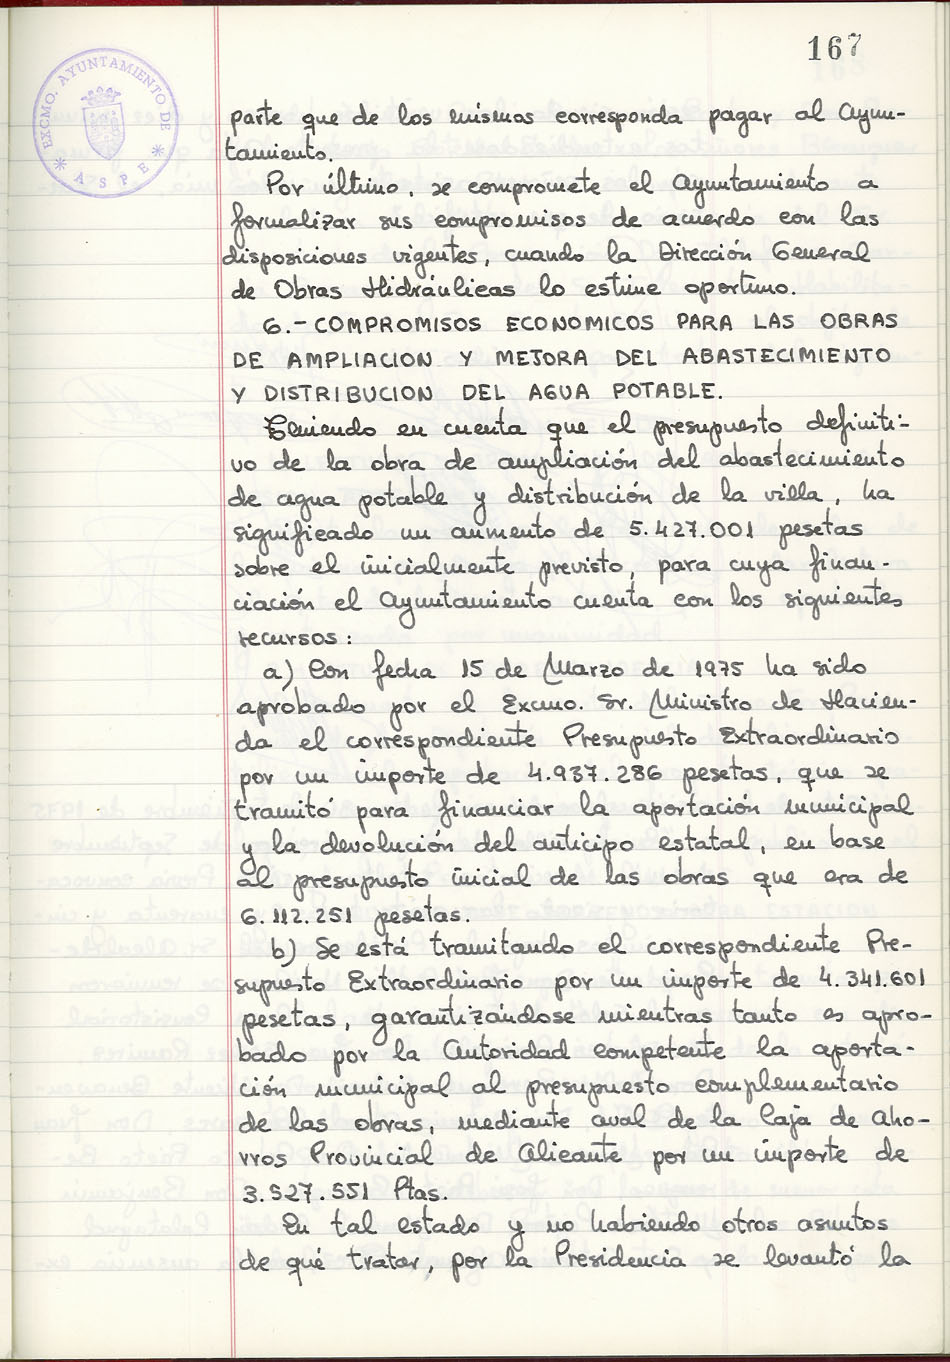 167
EXCMO. AYUNTAMIENTO DE
* ASPE *
parte que de los mismos corresponda pagar al Ayun-
tamiento.
Por último, se compromete el Ayuntamiento a
formalizar sus compromisos de acuerdo con las
disposiciones vigentes, cuando la Dirección General
de Obras Hidráulicas lo estime oportuno.
6.- COMPROMISOS ECONOMICOS PARA LAS OBRAS
DE AMPLIACION Y MEJORA DEL ABASTECIMIENTO
Y DISTRIBUCION DEL AGUA POTABLE.
Teniendo en cuenta que el presupuesto definiti-
vo de la obra de ampliación del abastecimiento
de agua potable y distribución de la villa, ha
significado un aumento de 5.427.001 pesetas
sobre el inicialmente previsto, para cuya finan-
ciación el Ayuntamiento cuenta con los siguientes
recursos:
a) Con fecha 15 de Marzo de 1975 ha sido
aprobado por el Excmo. Sr. Ministro de Hacien-
da el correspondiente Presupuesto Extraordinario
por un importe de 4.937.286 pesetas, que se
tramitó para financiar la aportación municipal
y la devolución del anticipo estatal, en base
al presupuesto inicial de las obras que era de
6.112.251 pesetas.
b) Se está tramitando el correspondiente Pre-
supuesto Extraordinario por un importe de 4.341.601
pesetas, garantizándose mientras tanto es apro-
bado por la Autoridad competente la aporta-
ción municipal al presupuesto complementario
de las obras, mediante aval de la Caja de Aho-
rros Provincial de Alicante por un importe de
3.527.551 Ptas.
En tal estado y no habiendo otros asuntos
de qué tratar, por la Presidencia se levantó la